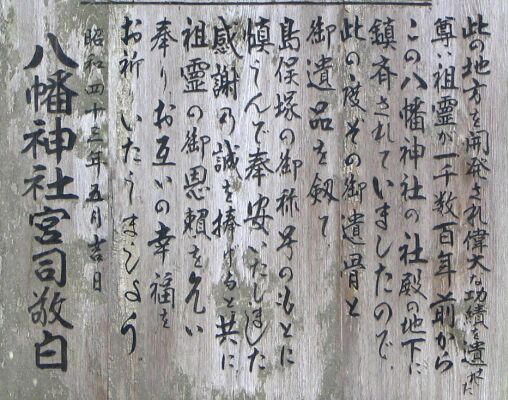 此の地方を開発され偉大な功績を遺された
尊い祖霊が一千数百年前から
この八幡神社の社殿の地下に
鎮斉されていましたので
此の度その御遺骨と
御遺品を刻て
島俣塚の御称号のもとに
慎しんで奉安いたしました
感謝の誠を捧げると共に
祖霊の御恩頼を乞い
奉りお互いの幸福を
お祈りいたしましょう
昭和四十三年五月吉日
八幡神社宮司敬白